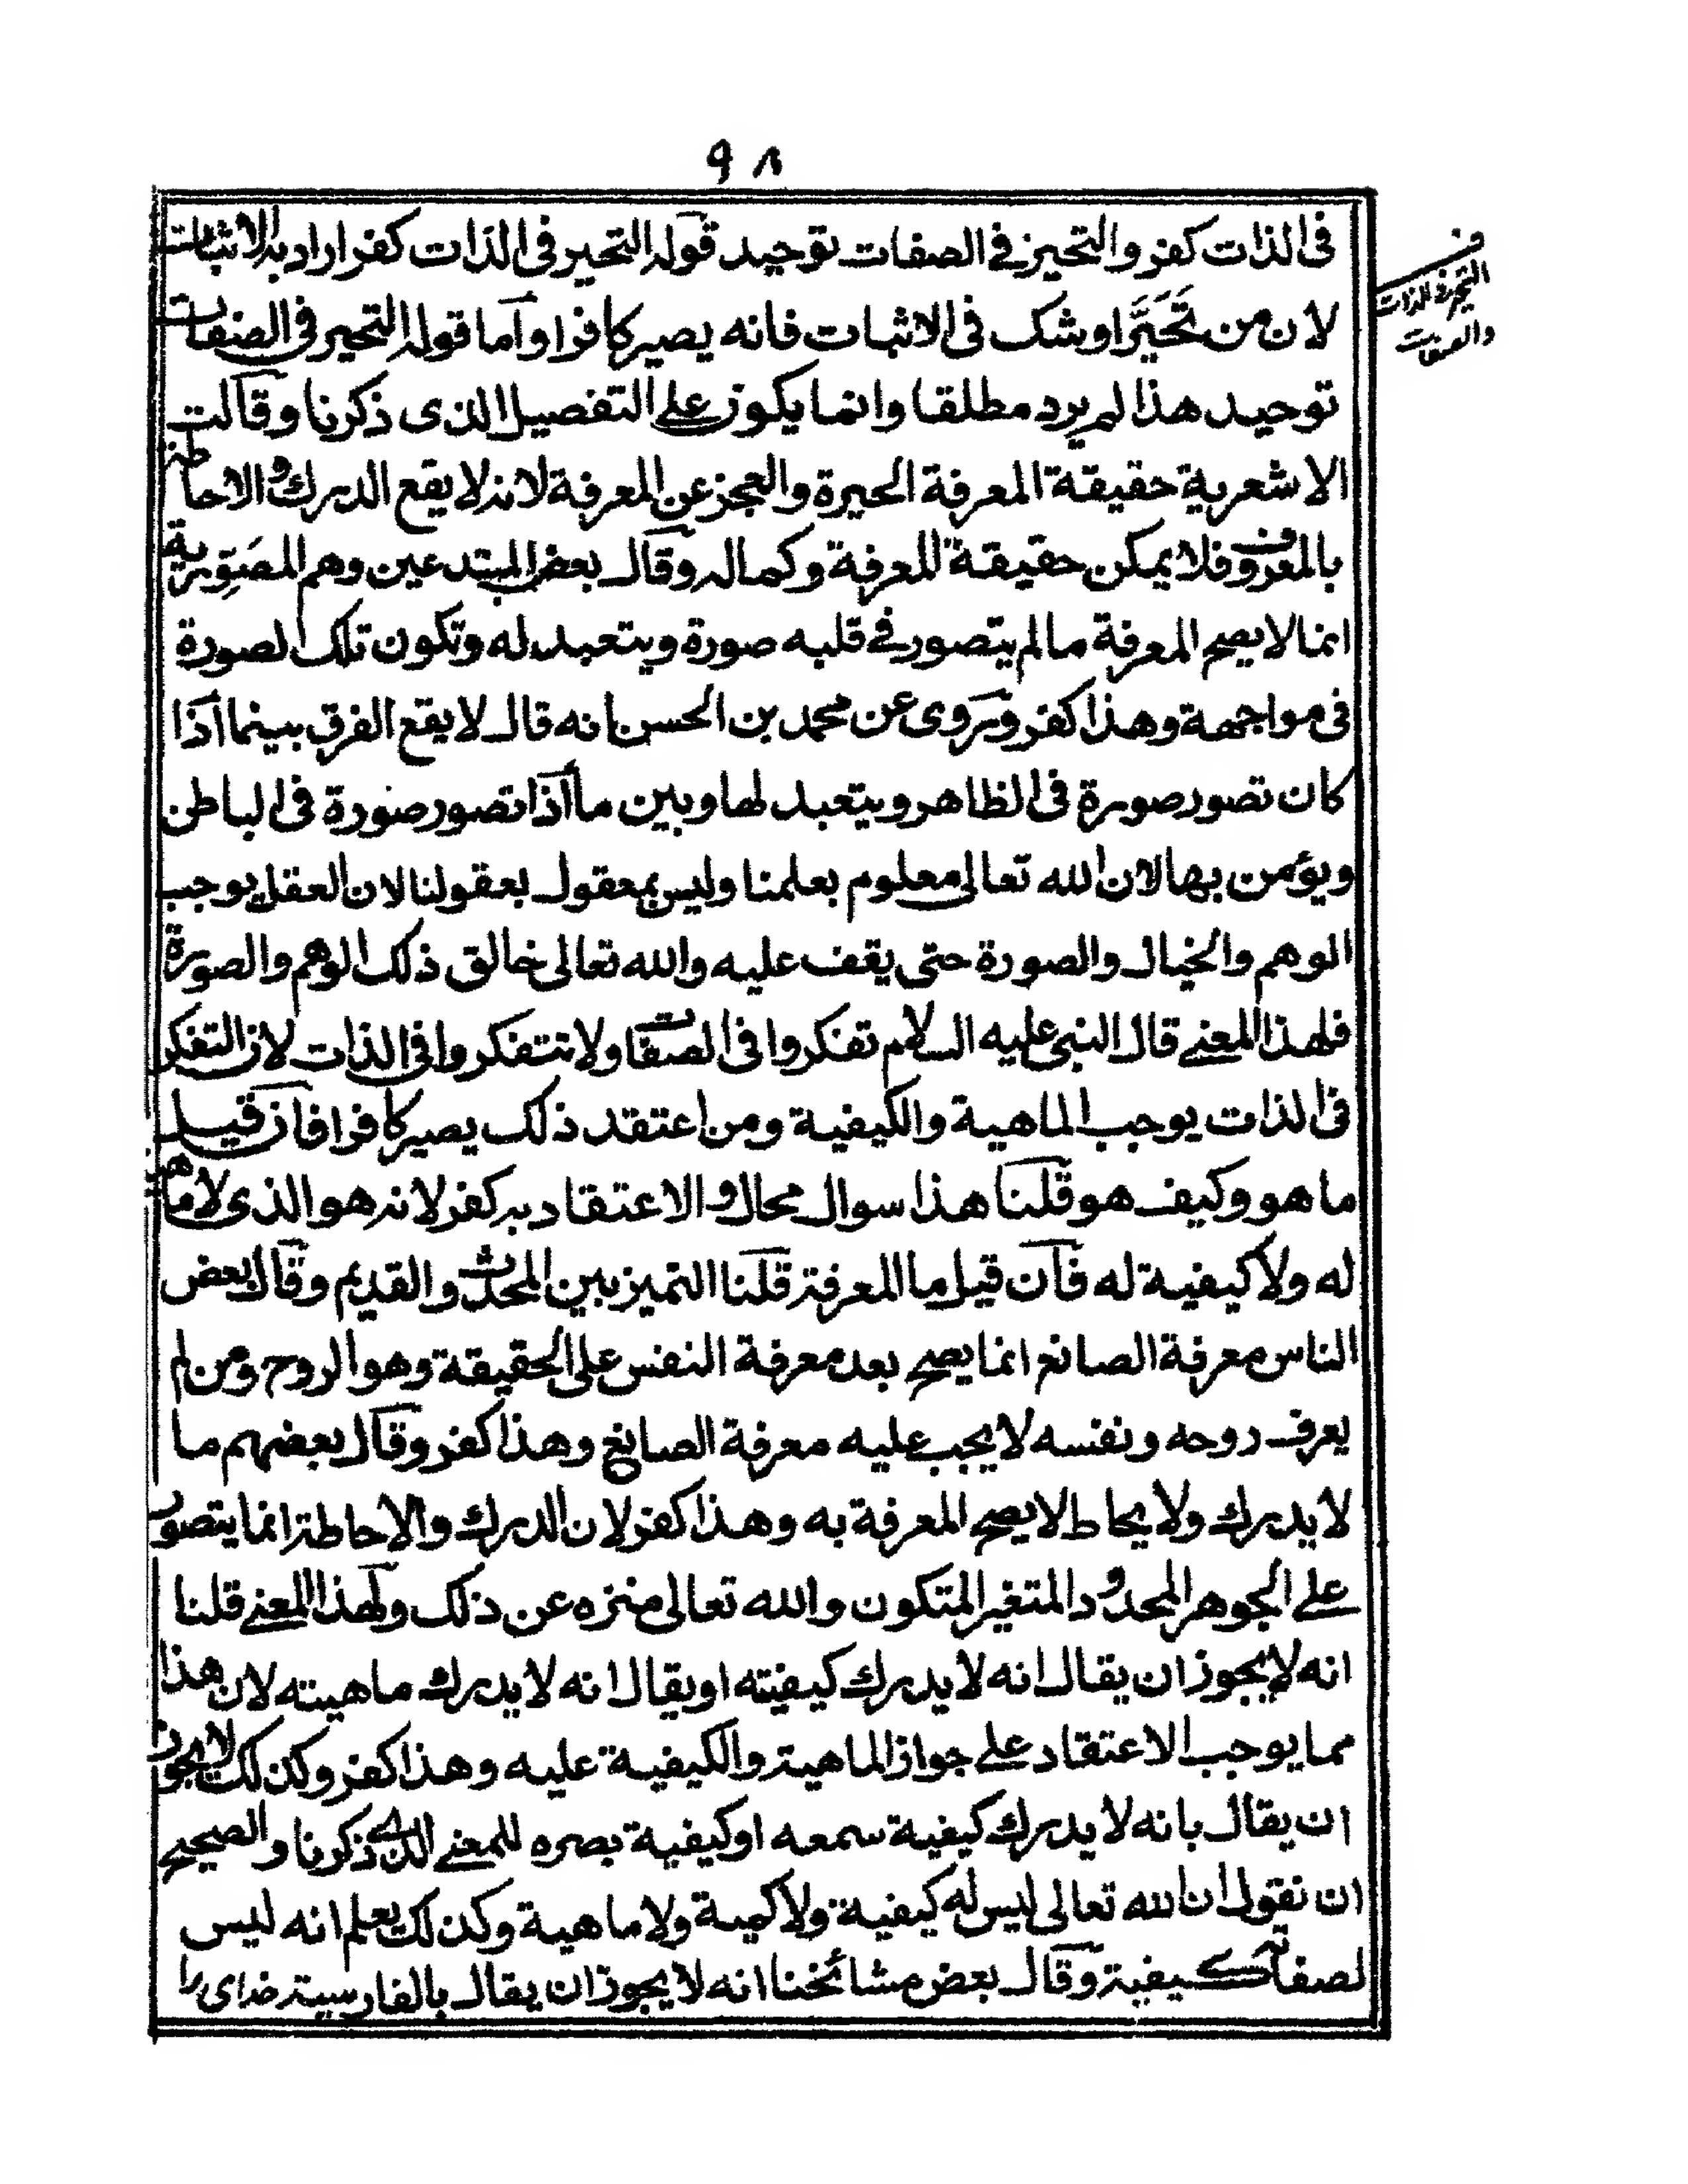 ٩٨
في الذات كفر والتحيز في الصفات توحيد قوله التحير في الذات كفر اراد به الاثبات
لان من تَحَيَّرَ اوشك في الاثبات فانه يصير كافرا واما قوله التحير في الصفات
توحيد هذا لم يرد مطلقا وانما يكون على التفصيل الذى ذكرنا وقالت
الاشعرية حقيقة المعرفة الحيرة والعجز عن المعرفة لانه لا يقع الدرك والاحاطة
بالمعروف فلا يمكن حقيقة المعرفة وكماله وقال بعض المبتدعين وهم المصَوِّرية
انما لا يصح المعرفة ما لم يتصور في قلبه صورة ويتعبد له وتكون تلك الصورة
في مواجهة وهذا كفر وروى عن محمد بن الحسن انه قال لا يقع الفرق بينما اذا
كان تصور صورة في الظاهر ويتعبد لها وبين ما اذا تصور صورة في الباطن
ويؤمن بها لان الله تعالى معلوم بعلمنا وليس بمعقول بعقولنا لان العقل يوجب
الوهم والخيال والصورة حتى يقف عليه والله تعالى خالق ذلك الوهم والصورة
فلهذا المعنى قال النبى عليه السلام تفكروا في الصفات ولا تتفكروا في الذات لان التفكر
في الذات يوجب الماهية والكيفية ومن اعتقد ذلك يصير كافرا فان قيل
ما هو وكيف هو قلنا هذا سوال محال والاعتقاد به كفر لانه هو الذى لا ماهية
له ولا كيفية له فان قيل ما المعرفة قلنا التميز بين المحدث والقديم وقال بعض
الناس معرفة الصانع انما يصح بعد معرفة النفس على الحقيقة وهو الروح ومن لم
يعرف روحه ونفسه لا يجب عليه معرفة الصانع وهذا كفر وقال بعضهم ما
لا يدرك ولا يحاط لا يصح المعرفة به وهذا كفر لان الدرك والاحاطة انما يتصور
على الجوهر المحدود المتغير المتكون والله تعالى منزه عن ذلك ولهذا المعنى قلنا
انه لا يجوز ان يقال انه لا يدرك كيفيته او يقال انه لا يدرك ماهيته لان هذا
مما يوجب الاعتقاد على جواز الماهية والكيفية عليه وهذا كفر وكذلك لا يجوز
ان يقال بانه لا يدرك كيفية سمعه او كيفية بصره للمعنى الذى ذكرنا والصحيح
ان نقول ان الله تعالى ليس له كيفية ولا كمية ولا ماهية وكذلك يعلم انه ليس
لصفاته كيفية وقال بعض مشائخنا انه لا يجوز ان يقال بالفارسية خداى را
التحير في الذات
والصفات